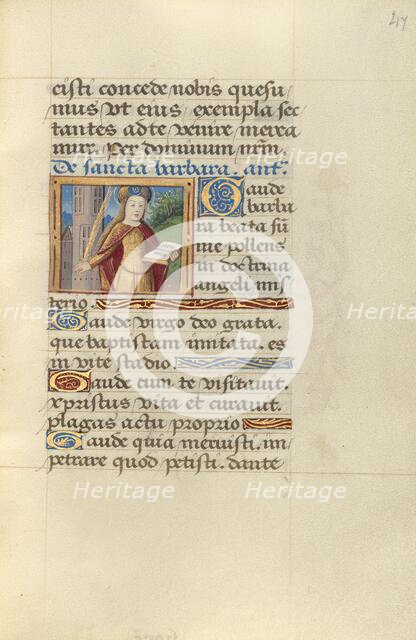 47
cisti concede nobis quesu
mus vt eius exempla sec
tantes ad te venire merea
mur. Per dominum nrm
De sancta barbara. ant.
Gaude
barba
ra beata sū
me pollens
in doctrina
angeli mis
terio.
Gaude virgo deo grata.
que baptistam imitata. es
in vite stadio
Gaude cum te visitauit.
xpristus vita et curauit.
plagas actu proprio
Gaude quia meruisti. im
petrare quod petisti. dante
Heritage
Heritage
Heritage
Heritage
Heritage
Heritage
Heritage